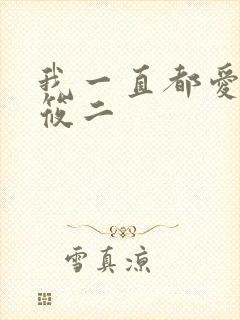 我一直都愛
筱二
雪真涼